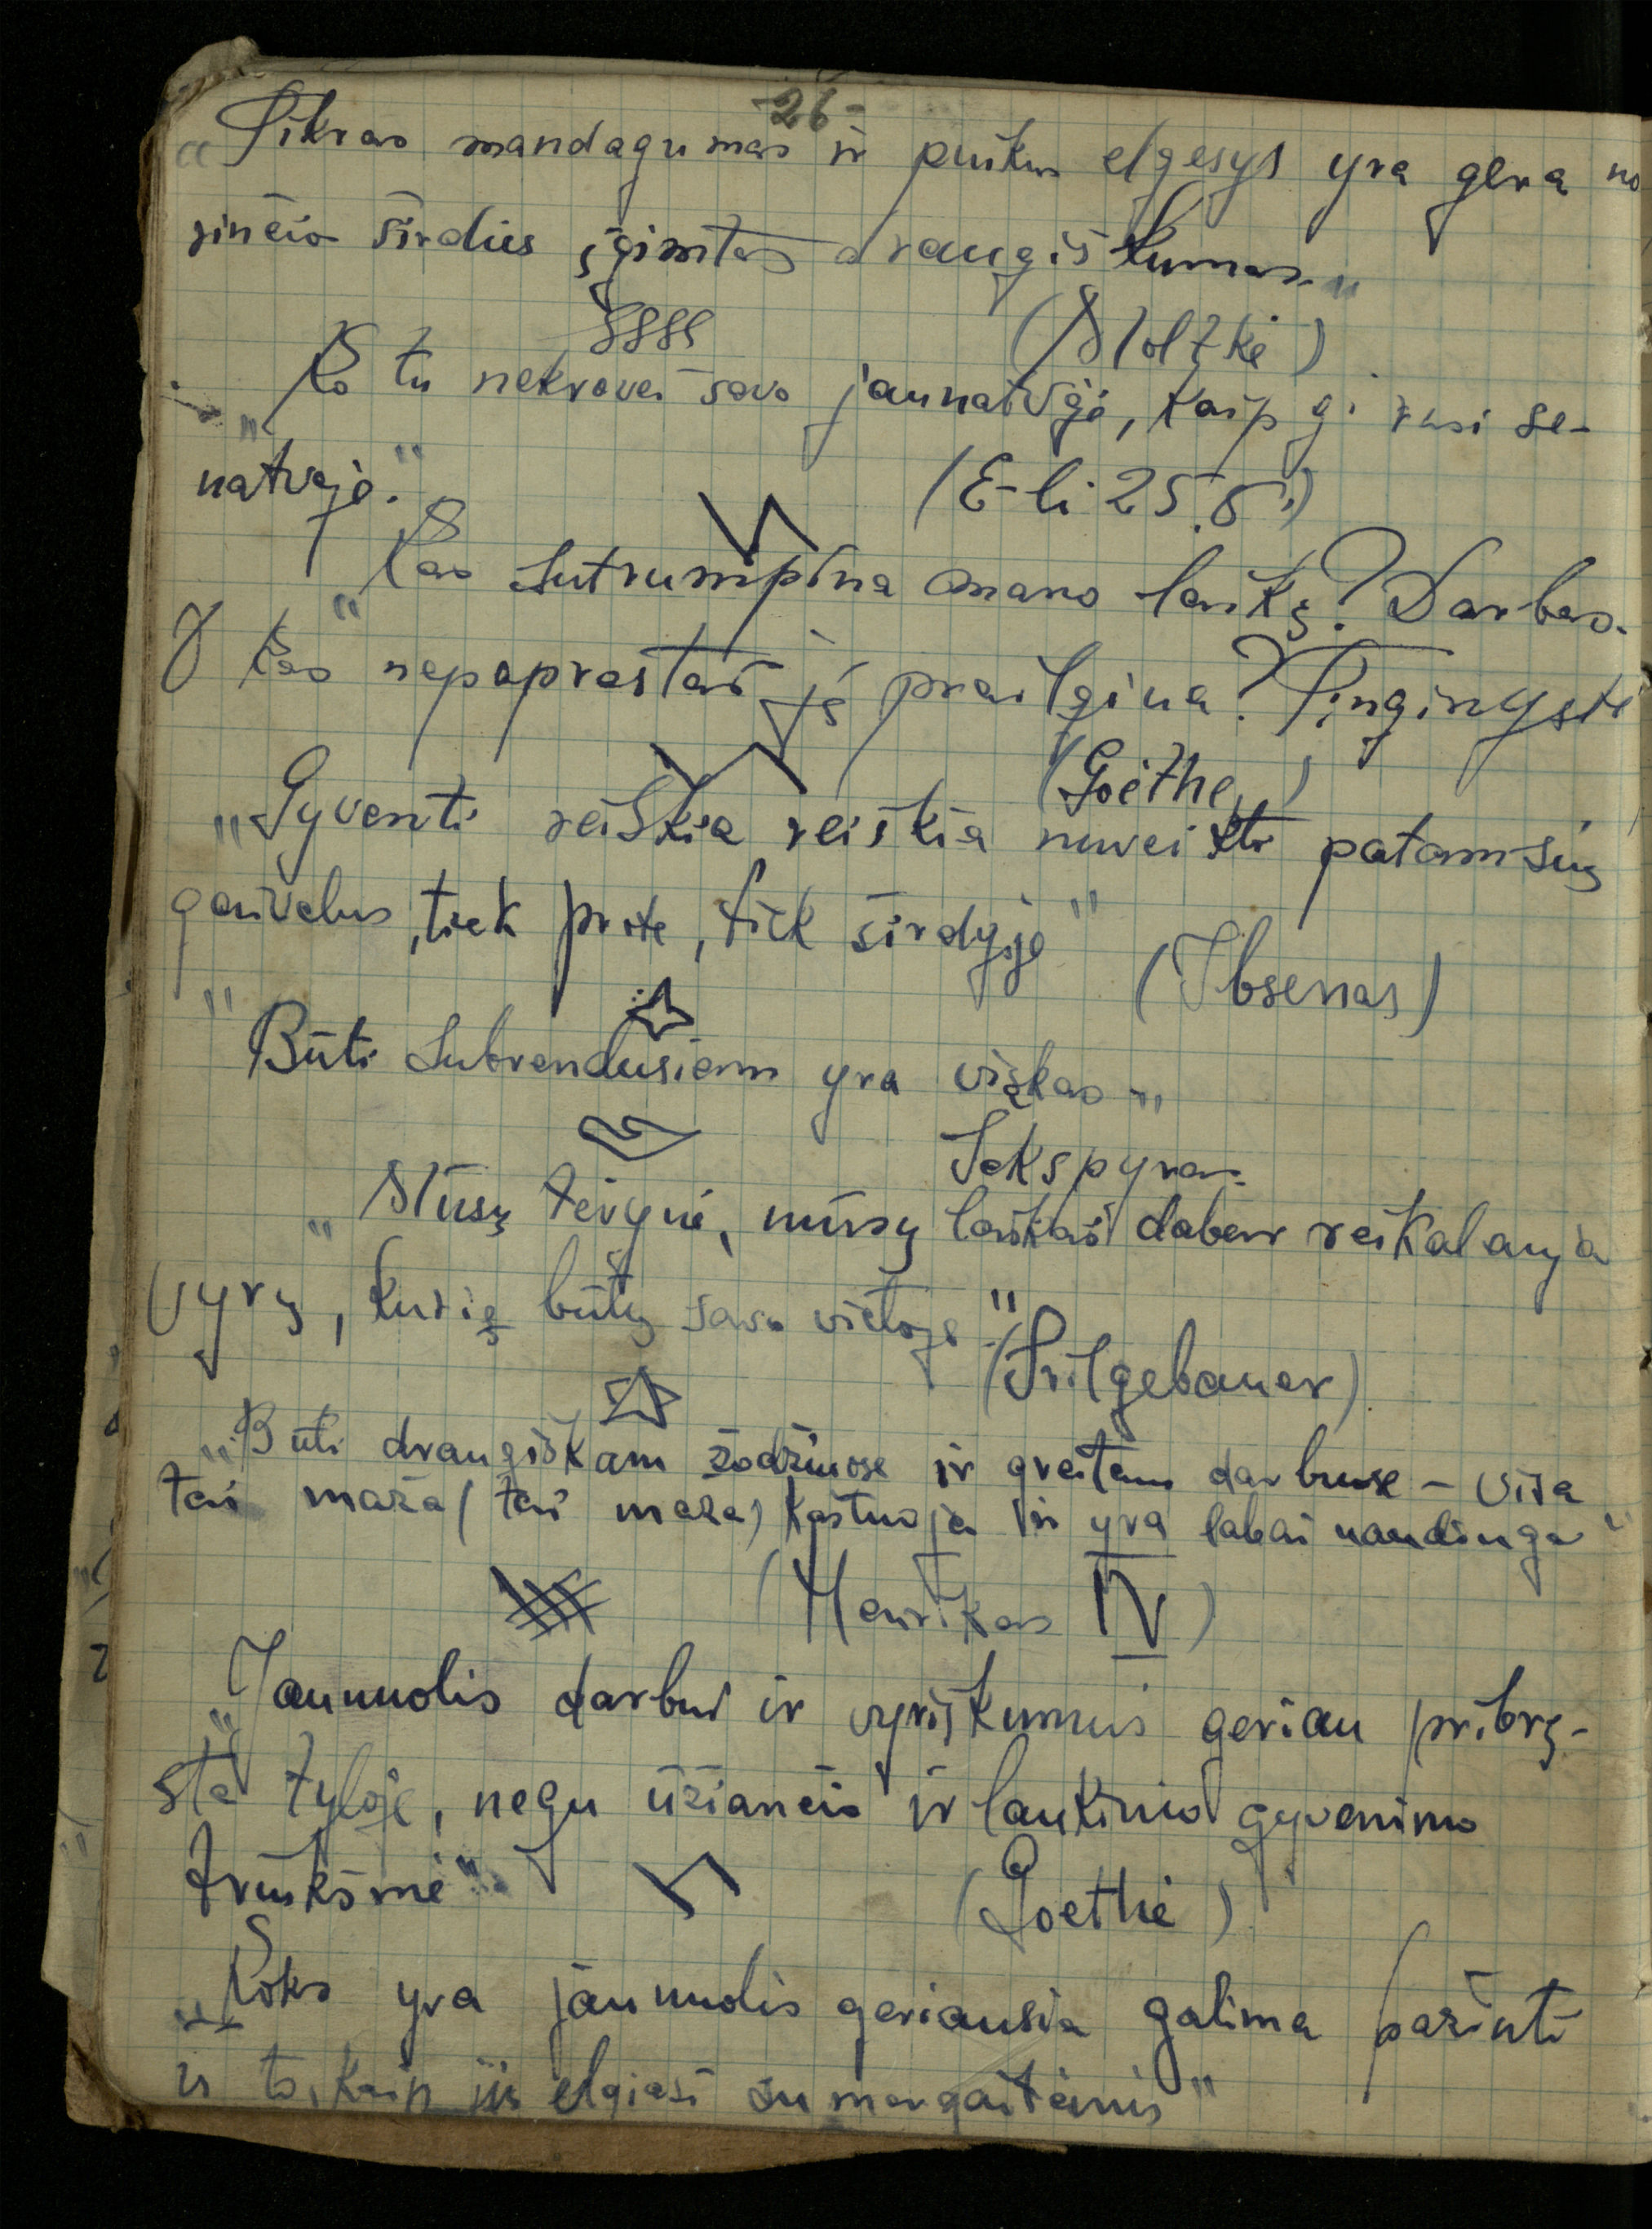 -26-
"Tikras mandagumas ir puikus elgesys yra gera no
rinčio širdies įgimtas draugiškumas."
(Moltkė)
"Ko tu nekrovei savo jaunatvėje, kaip gi rasi se-
natvėje."
(E-li 25.5)
"Kas sutrumpina mano laiką? Darbas.
O kas nepaprastai jį prailgina? Tinginystė
(Goethe)
"Gyventi reiškia reiškia nuveikti patamsių
gaivalus, tiek prote, tiek širdyje"
(Ibsenas)
"Būti subrendusiam yra viskas"
Šekspyras.
"Mūsų tėvynė, mūsų laikas dabar reikalauja
vyrų, kurie būtų savo vietoje"
(Trilgebauer)
"Būti draugiškam žodžiuose ir greitam darbuose – visa
tai maža (tai maža) kaštuoja ir yra labai naudinga"
(Henrikas IV)
"Jaunuolis darbui ir vyriškumui geriau pribrę-
sta tyloje, negu ūžiančio ir laukinio gyvenimo
triukšme"
(Goethe)
"Koks yra jaunuolis geriausia galima pažinti
iš to, kaip jis elgiasi su mergaitėmis"